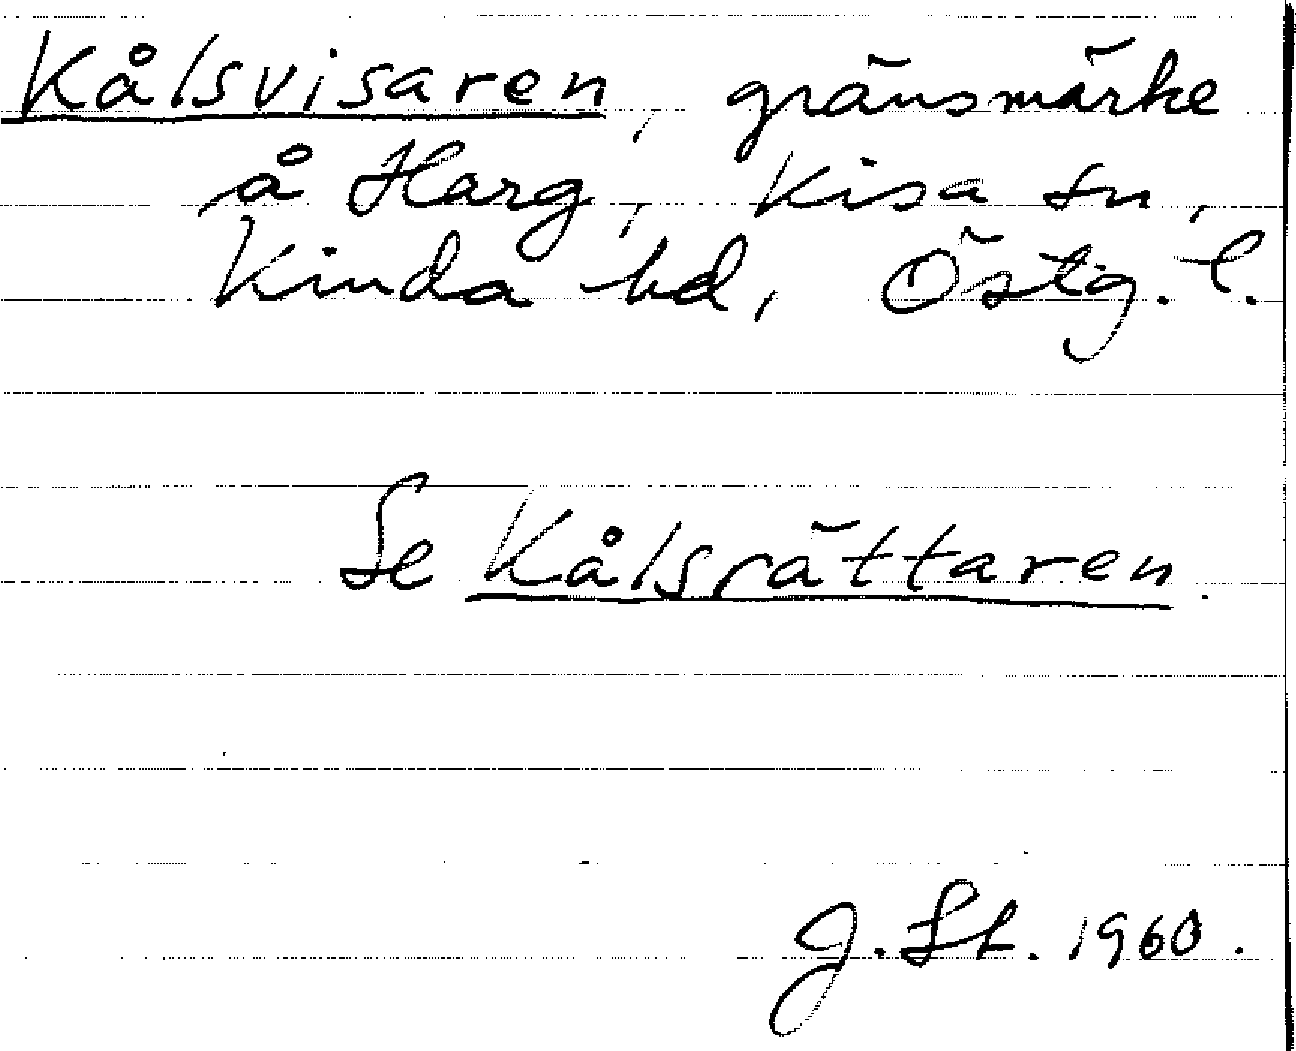 Kålsvisaren, gränsmärke
å Harg, Kisa sn,
Kinda hd, Östg. l.
Se Kålsrättaren.
J. St. 1960.